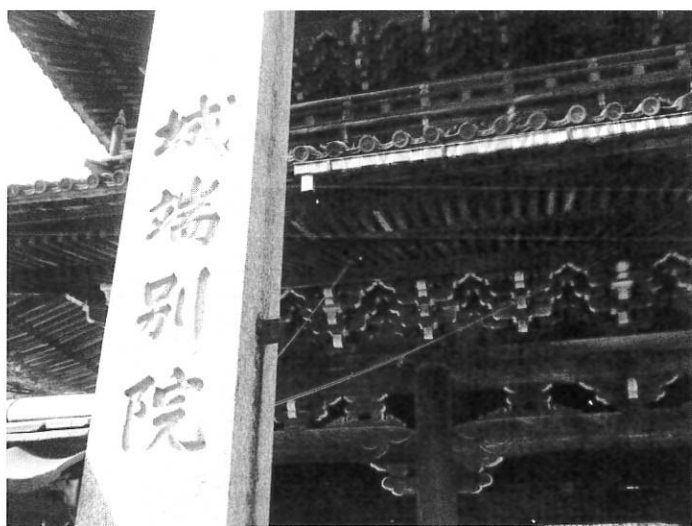 城端別院